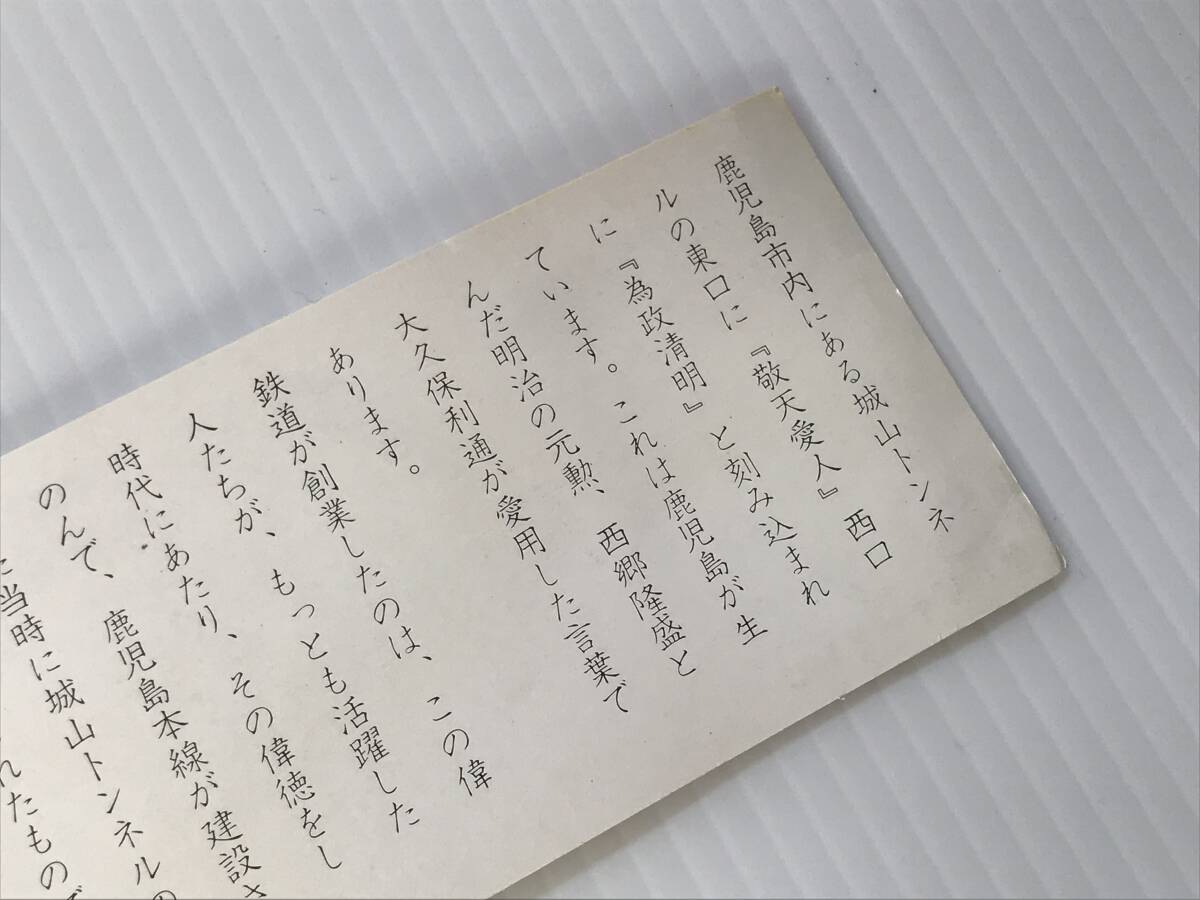 鹿児島市内にある城山トンネ
ルの東口に『敬天愛人』西口
に『為政清明』と刻み込まれ
ています。これは鹿児島が生
んだ明治の元勲、西郷隆盛と
大久保利通が愛用した言葉で
あります。
鉄道が創業したのは、この偉
人たちが、もっとも活躍した
時代にあたり、その偉徳をし
のんで、鹿児島本線が建設さ
た当時に城山トンネルの
れたもので